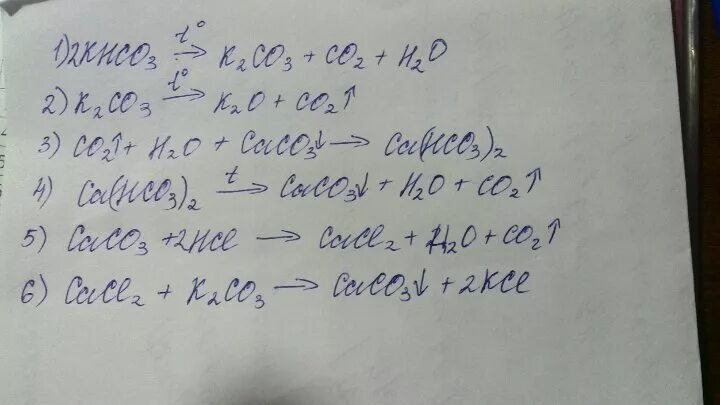 1) 2KHCO₃ →t° K₂CO₃ + CO₂ + H₂O
2) K₂CO₃ →t° K₂O + CO₂↑
3) CO₂↑ + H₂O + CaCO₃↓ → Ca(HCO₃)₂
4) Ca(HCO₃)₂ →t CaCO₃↓ + H₂O + CO₂↑
5) CaCO₃ + 2HCl → CaCl₂ + H₂O + CO₂↑
6) CaCl₂ + K₂CO₃ → CaCO₃↓ + 2KCl